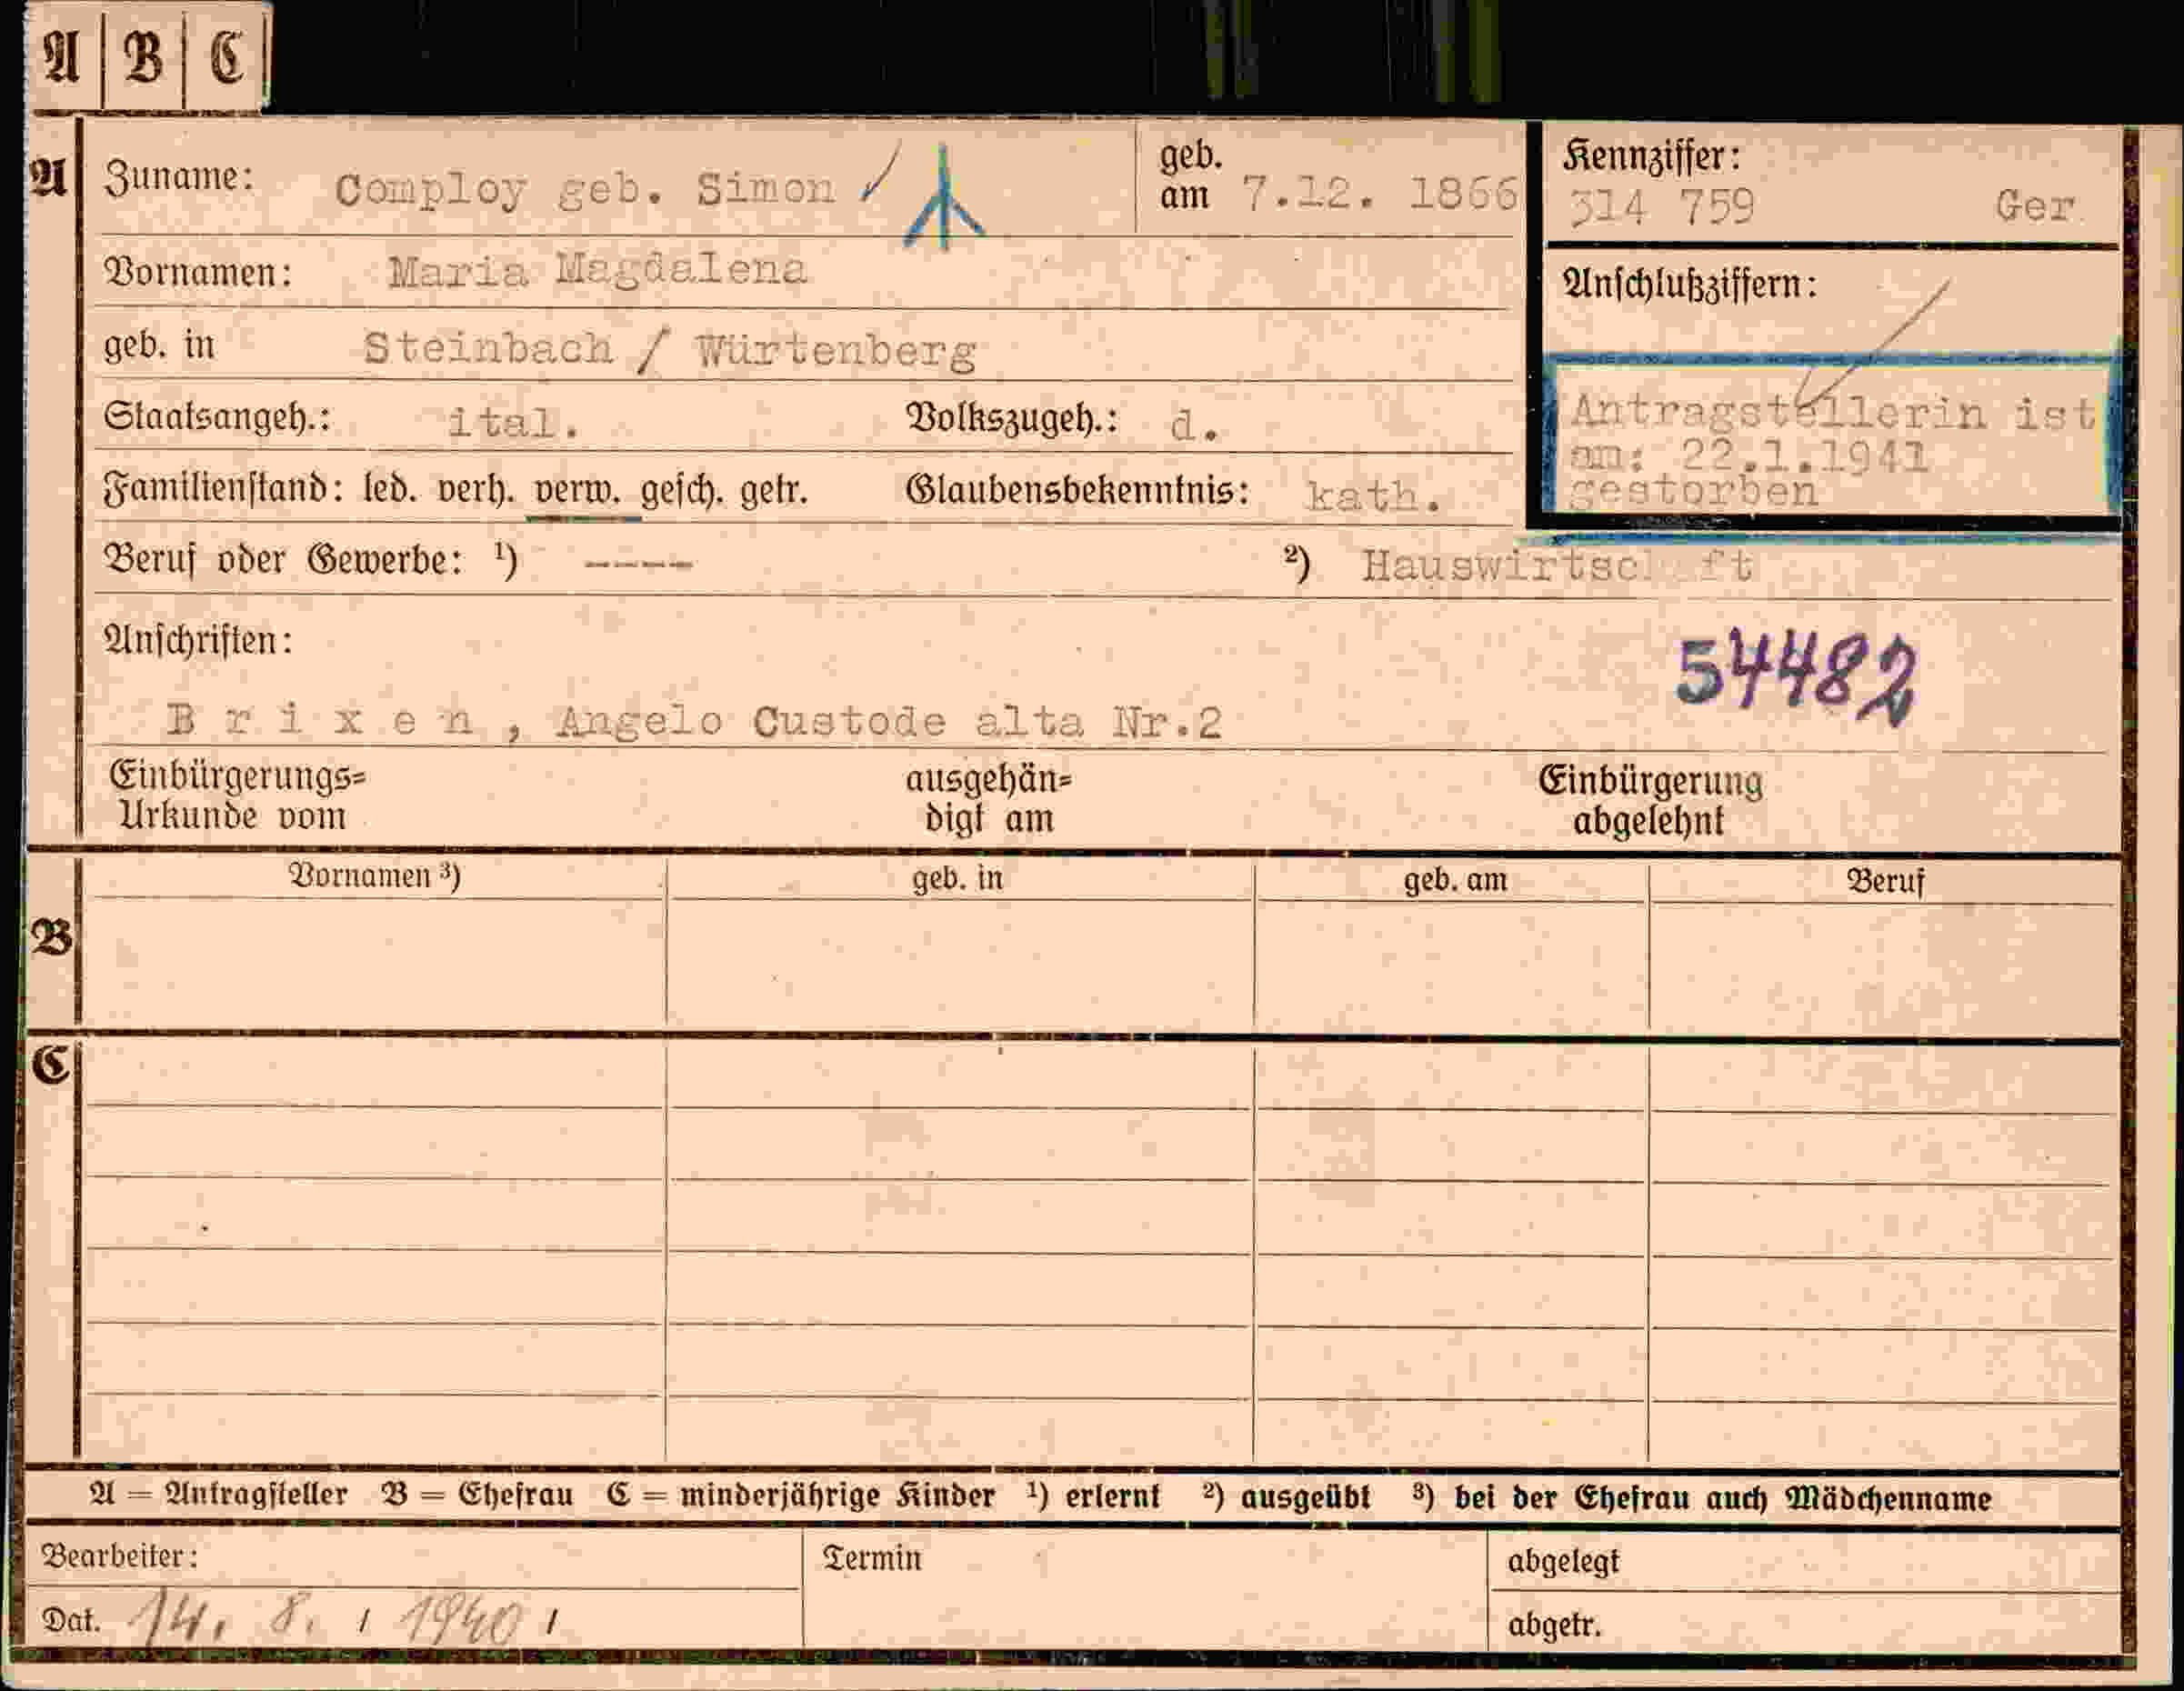 A B C
A Zuname: Comploy geb. Simon geb. am 7.12. 1866
Kennziffer:
314 759 Ger
Vornamen: Maria Magdalena
Anschlußziffern:
geb. in Steinbach / Würtenberg
Staatsangeh.: ital. Volkszugeh.: d.
Antragstellerin ist
am: 22.1.1941
gestorben
Familienstand: led. verh. verw. gesch. getr. Glaubensbekenntnis: kath.
Beruf oder Gewerbe: ¹) ---- ²) Hauswirtschaft
Anschriften:
54482
B r i x e n , Angelo Custode alta Nr.2
Einbürgerungs= ausgehän= Einbürgerung
Urkunde vom digt am abgelehnt
B Vornamen ³) geb. in geb. am Beruf
C
A = Antragsteller B = Ehefrau C = minderjährige Kinder ¹) erlernt ²) ausgeübt ³) bei der Ehefrau auch Mädchenname
Bearbeiter: Termin abgelegt
Dat. 14. 8. 1940 abgetr.